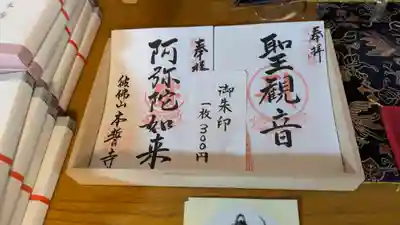 奉拝
聖観音
御朱印
一枚300円
奉拝
阿弥陀如来
本誓寺